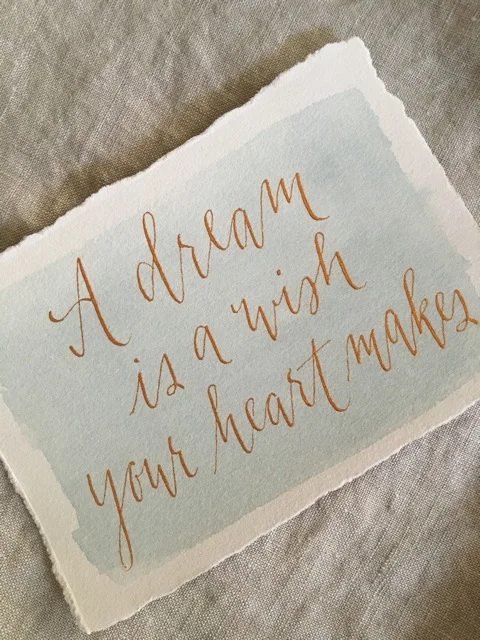 A dream
is a wish
your heart makes